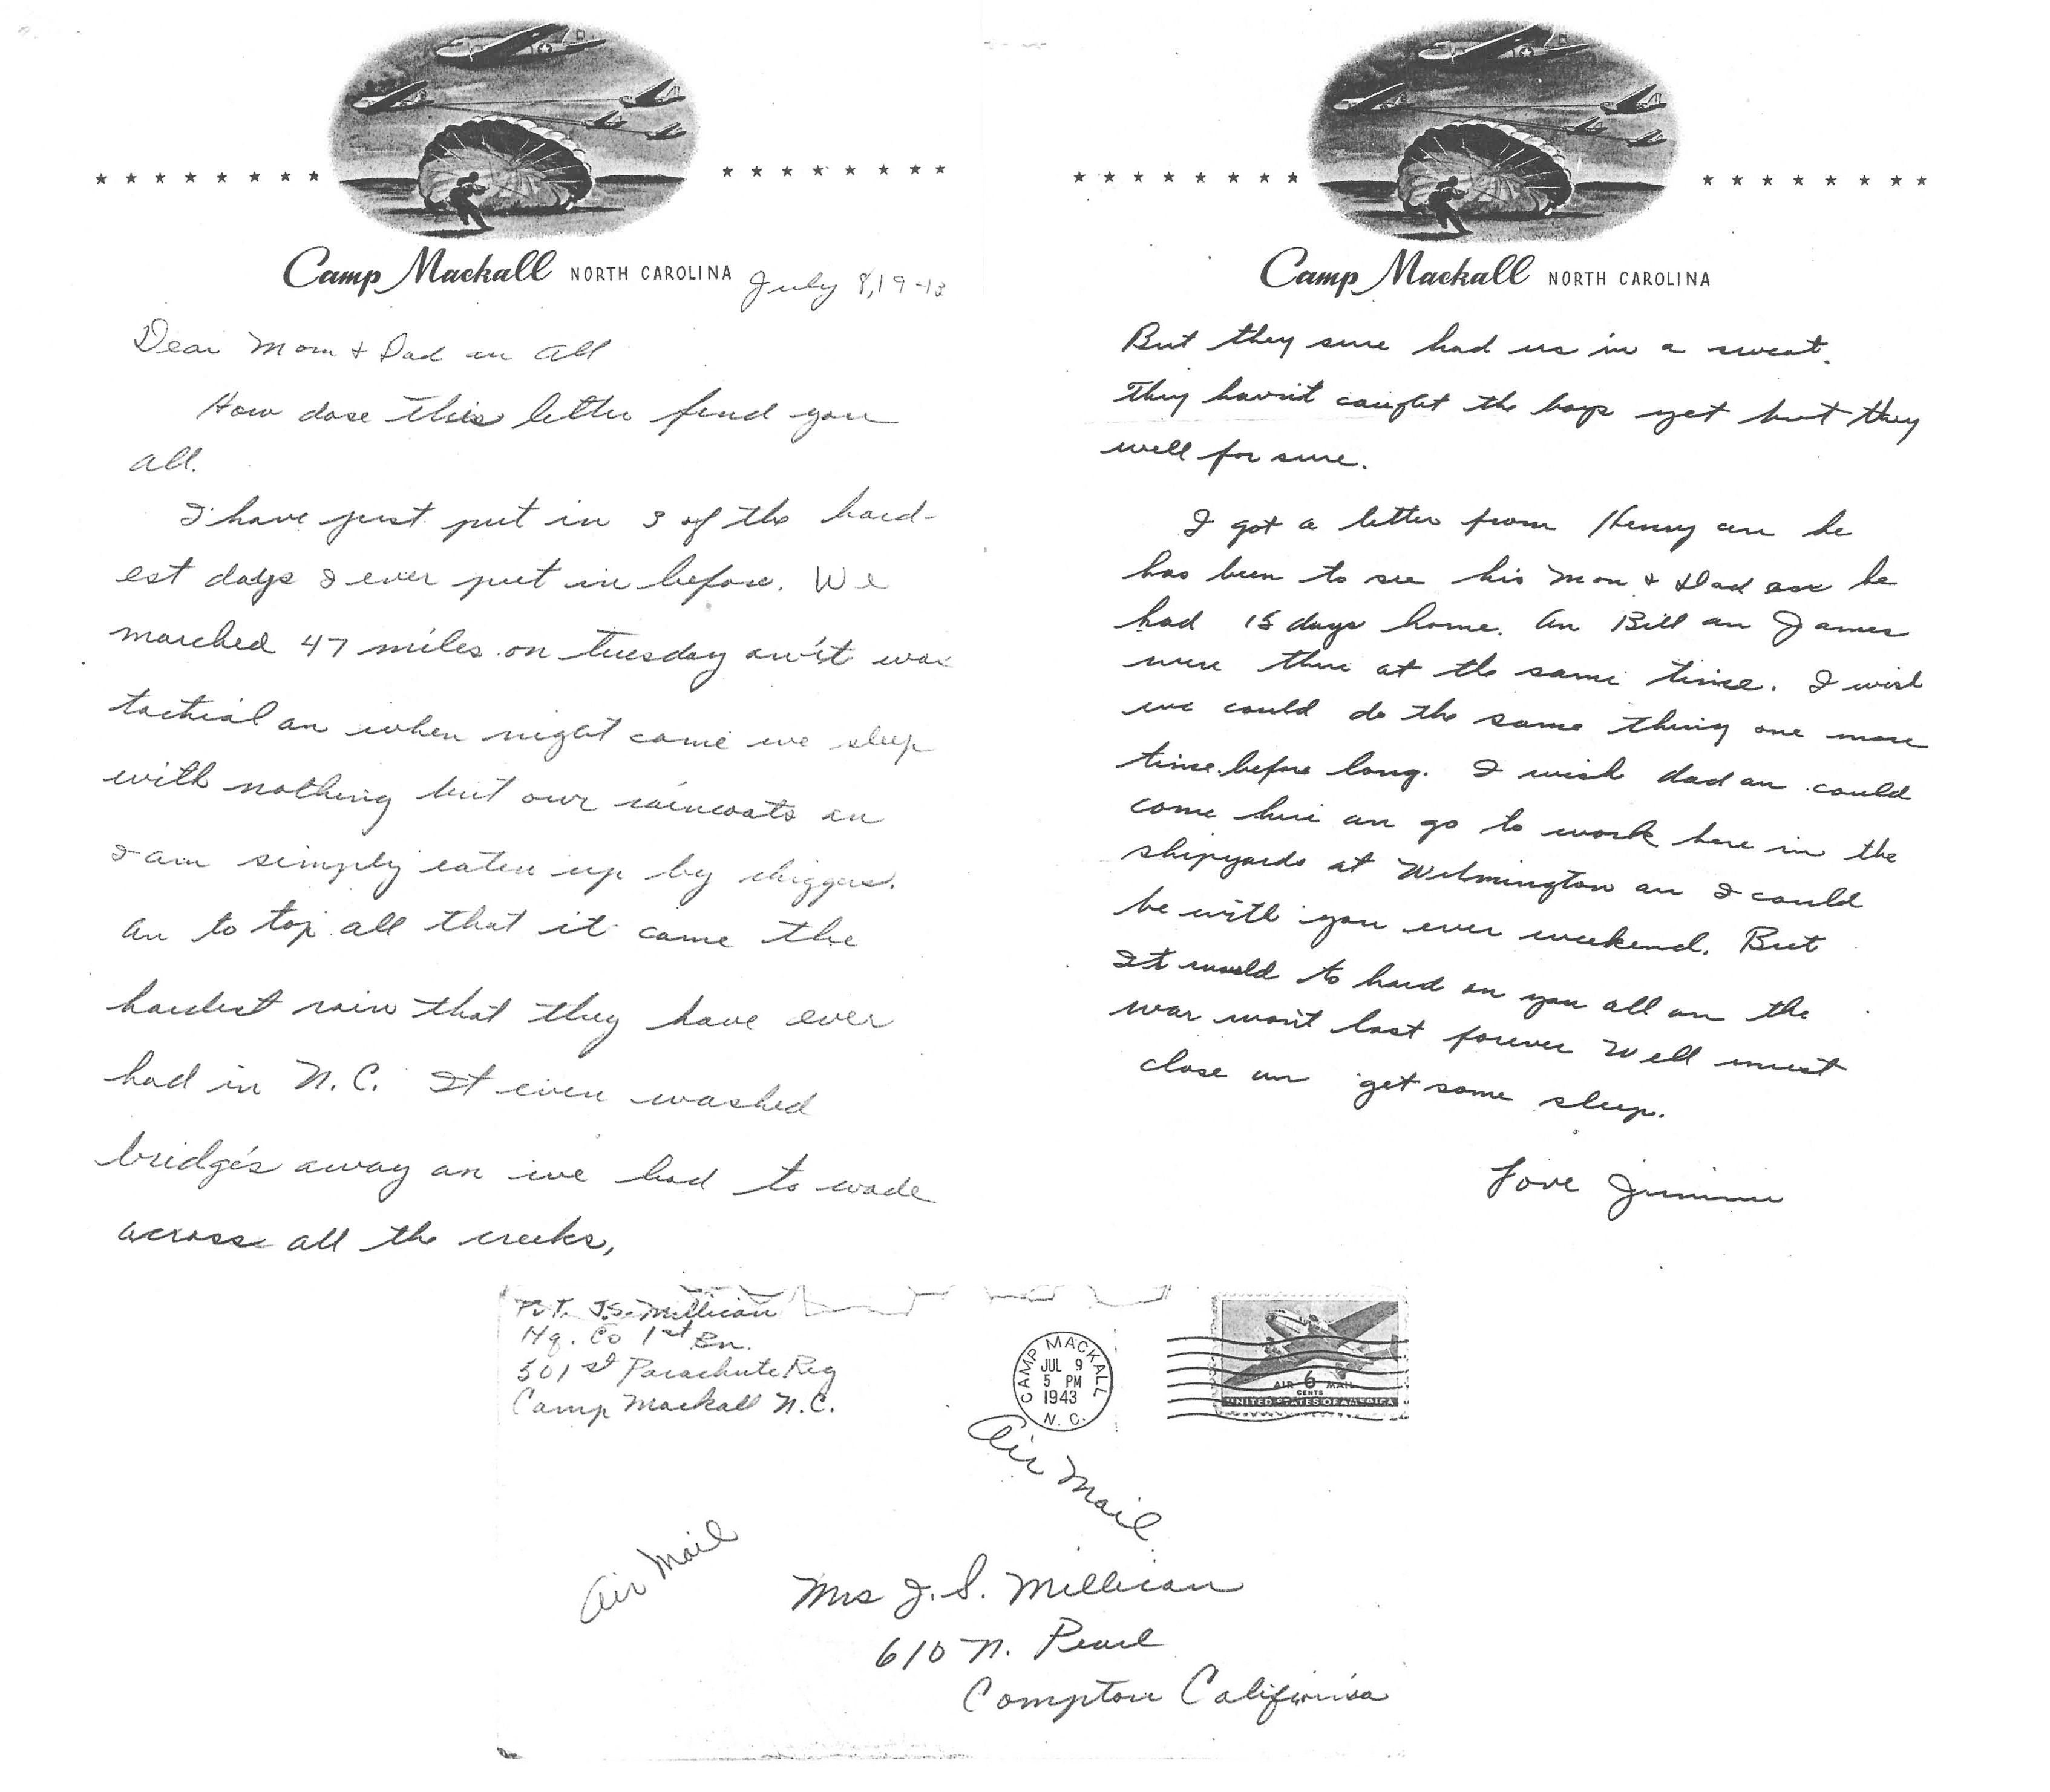 Camp Mackall NORTH CAROLINA July 8, 1943
Dear Mom + Dad an all
How dose this letter find you
all.
I have just put in 3 of the hard-
est days I ever put in before. We
marched 47 miles on tuesday an it was
tactial an when night came we sleep
with nothing but our raincoats an
I am simply eaten up by chiggers.
an to top all that it came the
hardest rain that they have ever
had in N.C. It even washed
bridge's away an we had to wade
across all the creeks,
Camp Mackall NORTH CAROLINA
But they sure had us in a sweat.
They havn't caught the boys yet but they
well for sure.
I got a letter from Henry an he
has been to see his Mom + Dad an he
had 15 days home. An Bill an James
were there at the same time. I wish
we could do the same thing one more
time before long. I wish dad an could
come here an go to work here in the
shipyards at Wilmington an I could
be with you ever weekend. But
It would to hard on you all an the
war won't last forever Well must
close an get some sleep.
Love Jimmie
Pvt. J.S. Millican
Hq. Co 1st Bn.
501st Parachute Reg
Camp Mackall N.C.
CAMP MACKALL
JUL 9
5 PM
1943
N.C.
AIR 6 MAIL
CENTS
UNITED STATES OF AMERICA
Air Mail
Air Mail
Mrs J. S. Millican
610 N. Pearl
Compton California